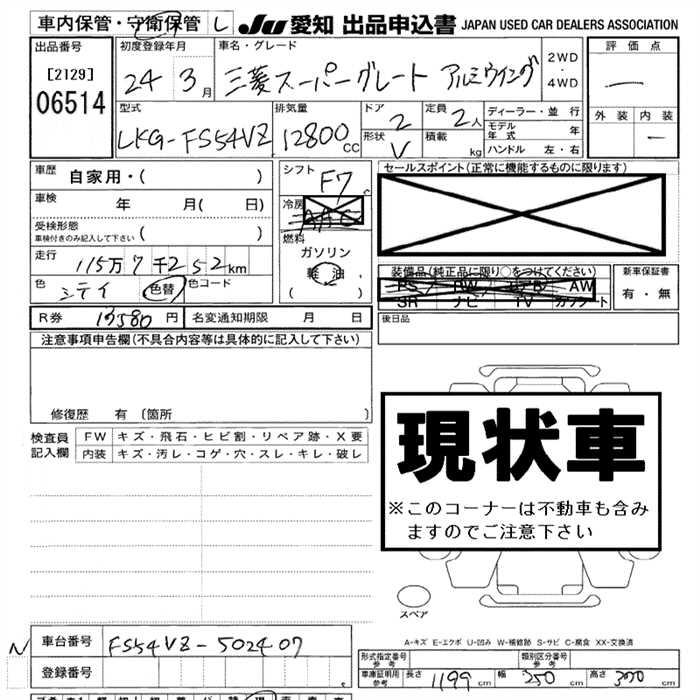 車内保管・守衛保管 L JU 愛知 出品申込書 JAPAN USED CAR DEALERS ASSOCIATION
出品番号 初度登録年月 車名・グレード 2WD 評価点
[2129] 24 3月 三菱スーパーグレート アルミウイング 4WD ―
06514 型式 排気量 ドア 定員 ディーラー・並行 外装 内装
LKG-FS54VZ 12800CC 2 2人 モデル年式 年
形状 V 積載 kg ハンドル 左・右 ―
車歴 自家用・( ) シフト F7 セールスポイント(正常に機能するものに限ります)
車検 年 月( 日) 冷房
受検形態 車検付きのみ記入して下さい ( ) 燃料
走行 115万7千252km ガソリン 軽油 ( ) 装備品(純正品に限り○をつけてください) 新車保証書
色 シテイ 色替 色コード SR ナビ TV 有・無
R券 13580円 名変通知期限 月 日 後日品
注意事項申告欄(不具合内容等は具体的に記入して下さい)
修復歴 有 〔箇所 〕
検査員記入欄 FW キズ・飛石・ヒビ割・リペア跡・X要
内装 キズ・汚レ・コゲ・穴・スレ・キレ・破レ
現状車
※このコーナーは不動車も含み
ますのでご注意下さい
スペア
A-キズ E-エクボ U-凹み W-補修跡 S-サビ C-腐食 XX-交換済
N 車台番号 FS54VZ-502407
登録番号
型式指定番号 参考 類別区分番号 参考
車庫証明用 参考 長さ 1199cm 幅 250cm 高さ cm